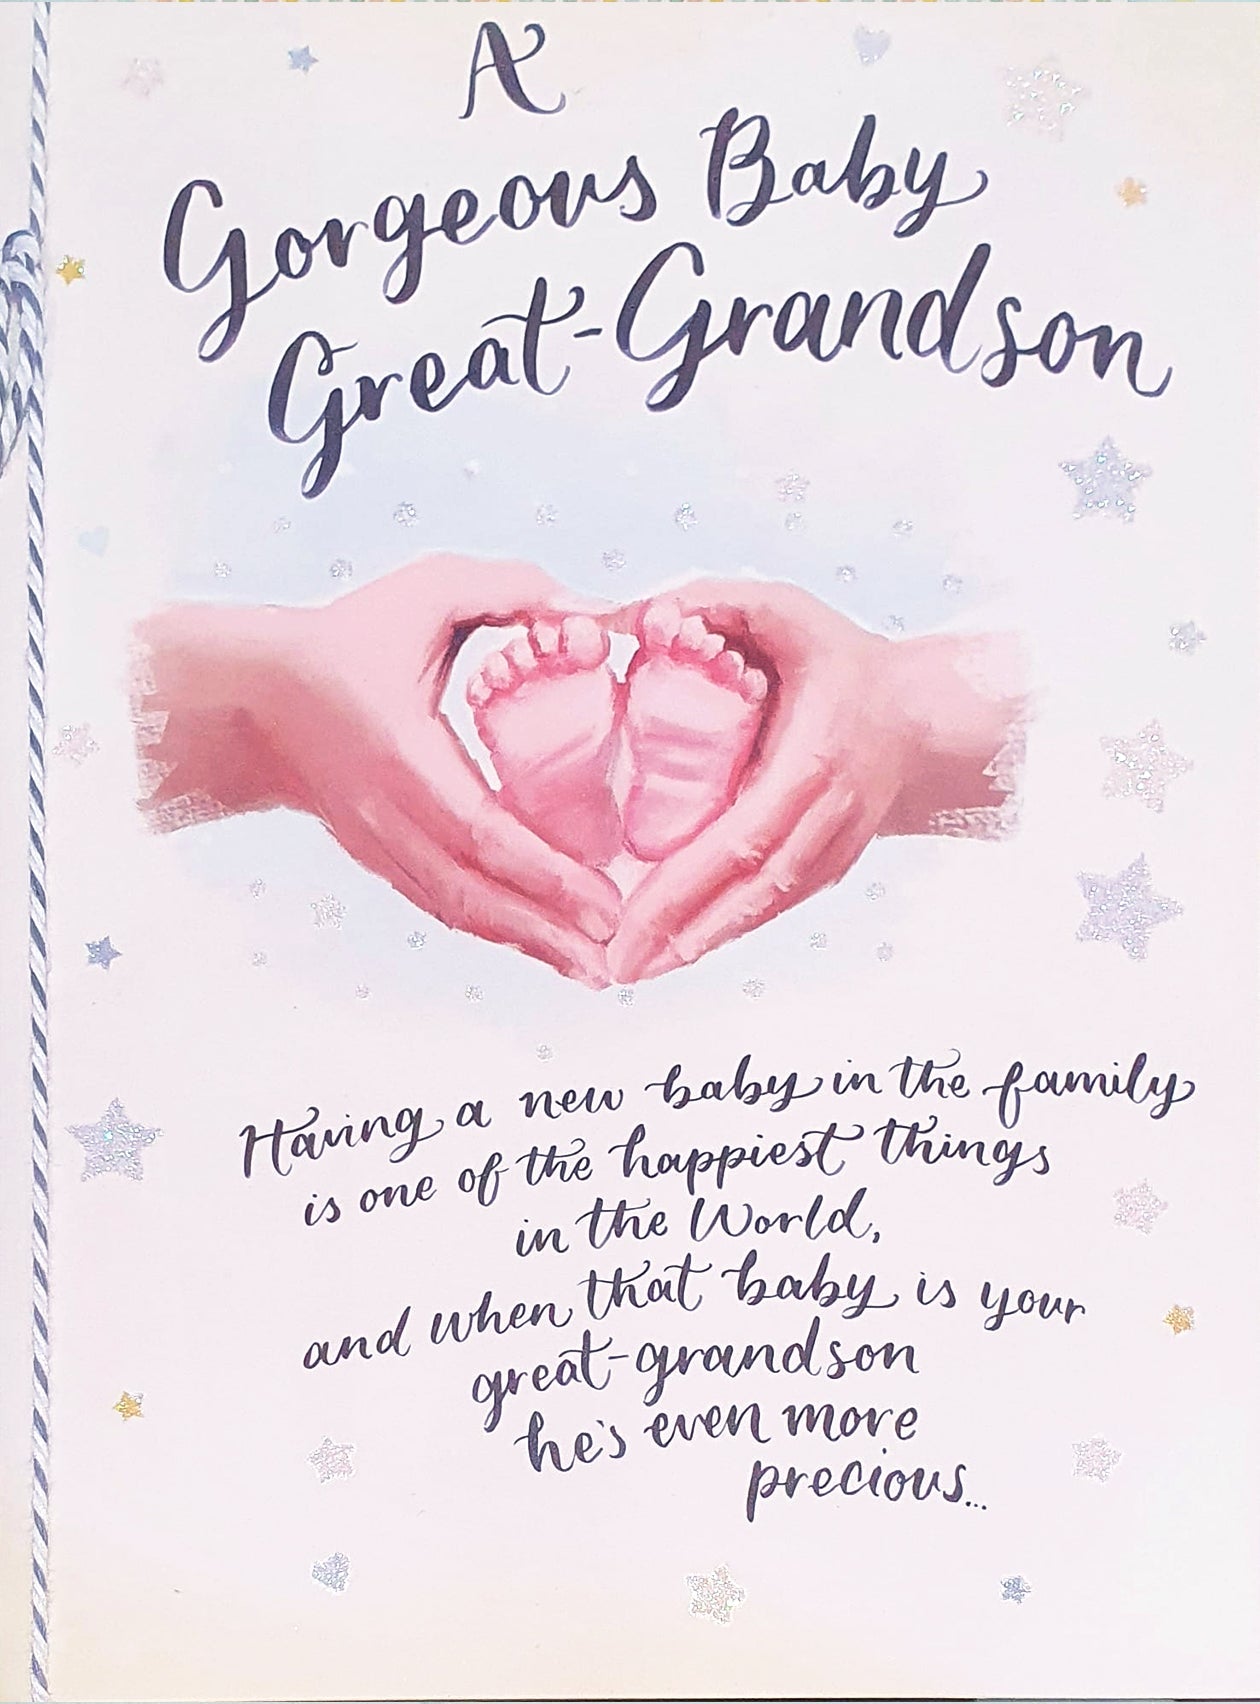 A
Gorgeous Baby
Great-Grandson
Having a new baby in the family
is one of the happiest things
in the World,
and when that baby is your
great-grandson
he's even more
precious...